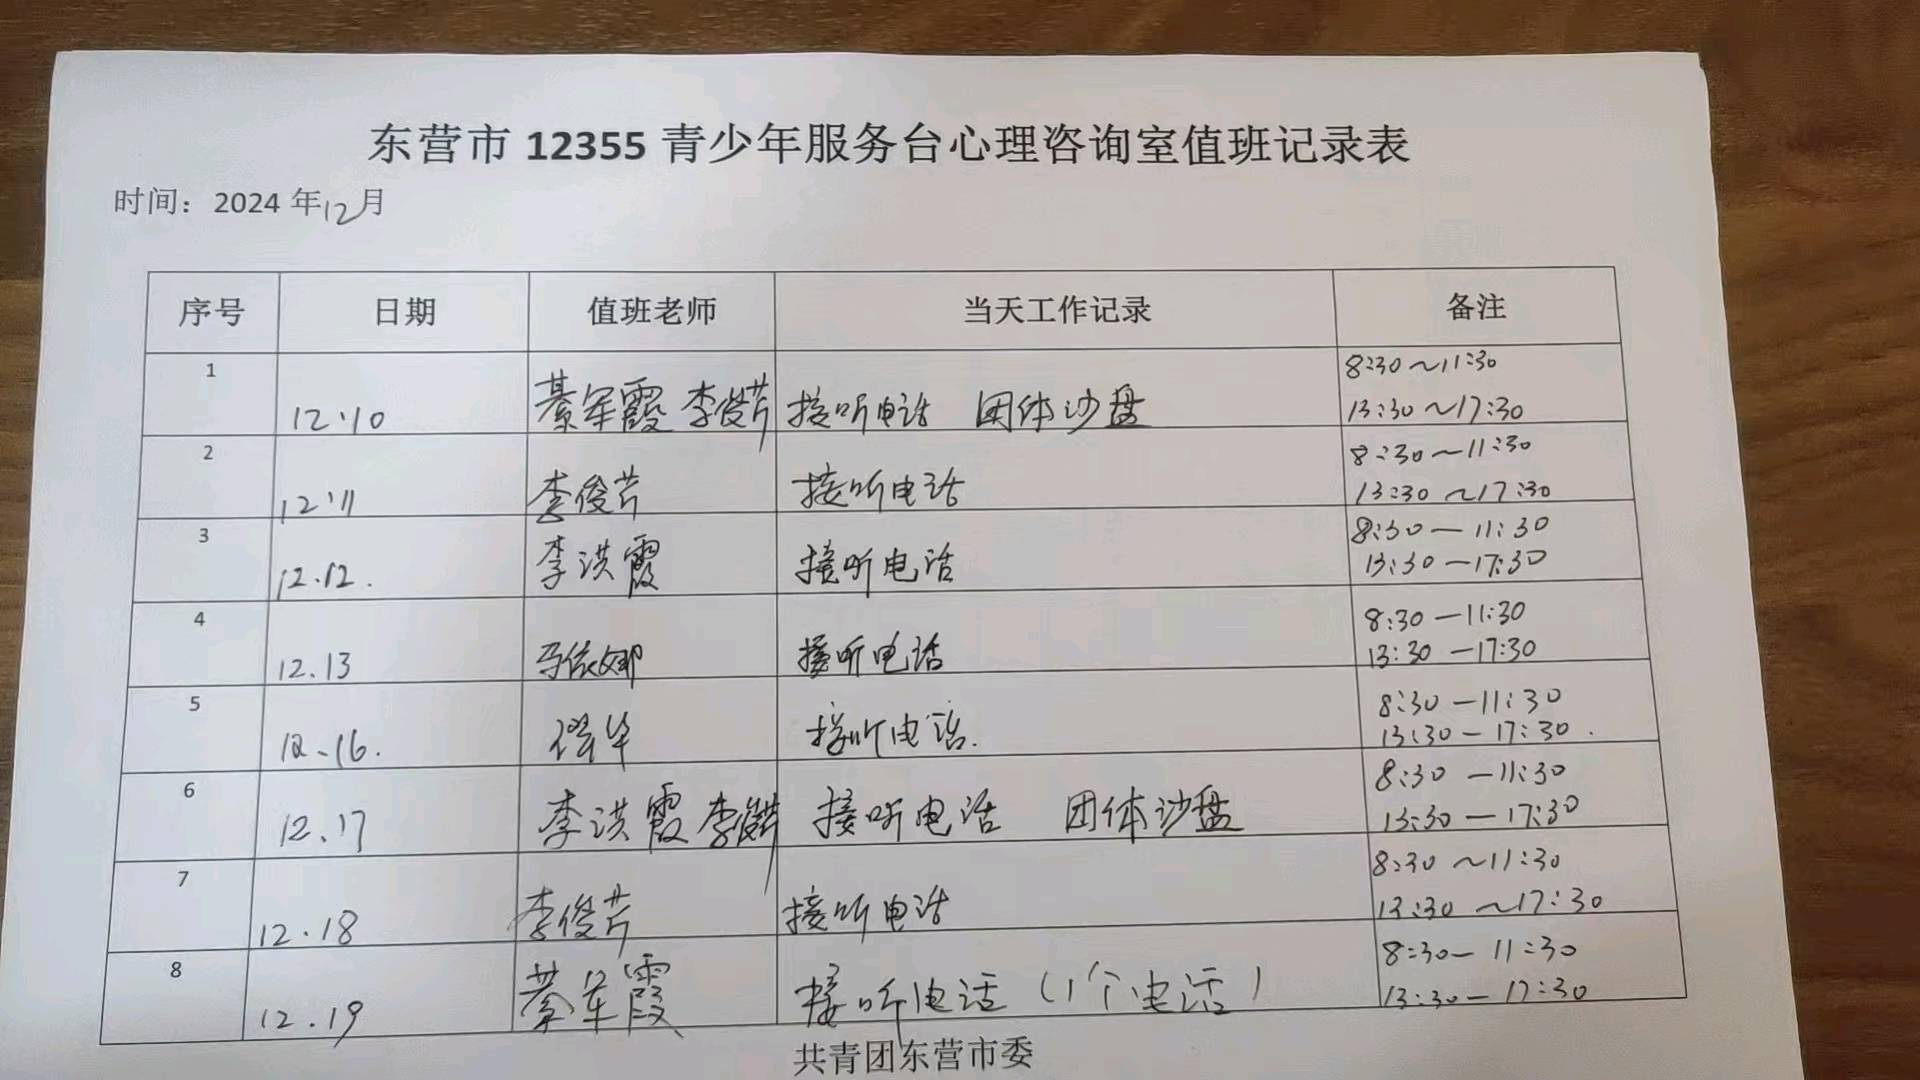 东营市 12355 青少年服务台心理咨询室值班记录表
时间：2024 年12月
序号 日期 值班老师 当天工作记录 备注
1 12.10 綦军霞 李俊芹 接听电话 团体沙盘 8:30～11:30
13:30～17:30
2 12.11 李俊芹 接听电话 8:30～11:30
13:30～17:30
3 12.12. 李洪霞 接听电话 8:30—11:30
13:30—17:30
4 12.13 马依娜 接听电话 8:30—11:30
13:30—17:30
5 12.16. 接听电话. 8:30—11:30
13:30—17:30.
6 12.17 李洪霞 李俊芹 接听电话 团体沙盘 8:30—11:30
13:30—17:30
7 12.18 李俊芹 接听电话 8:30～11:30
13:30～17:30
8 12.19 綦军霞 接听电话（1个电话） 8:30—11:30
13:30—17:30
共青团东营市委